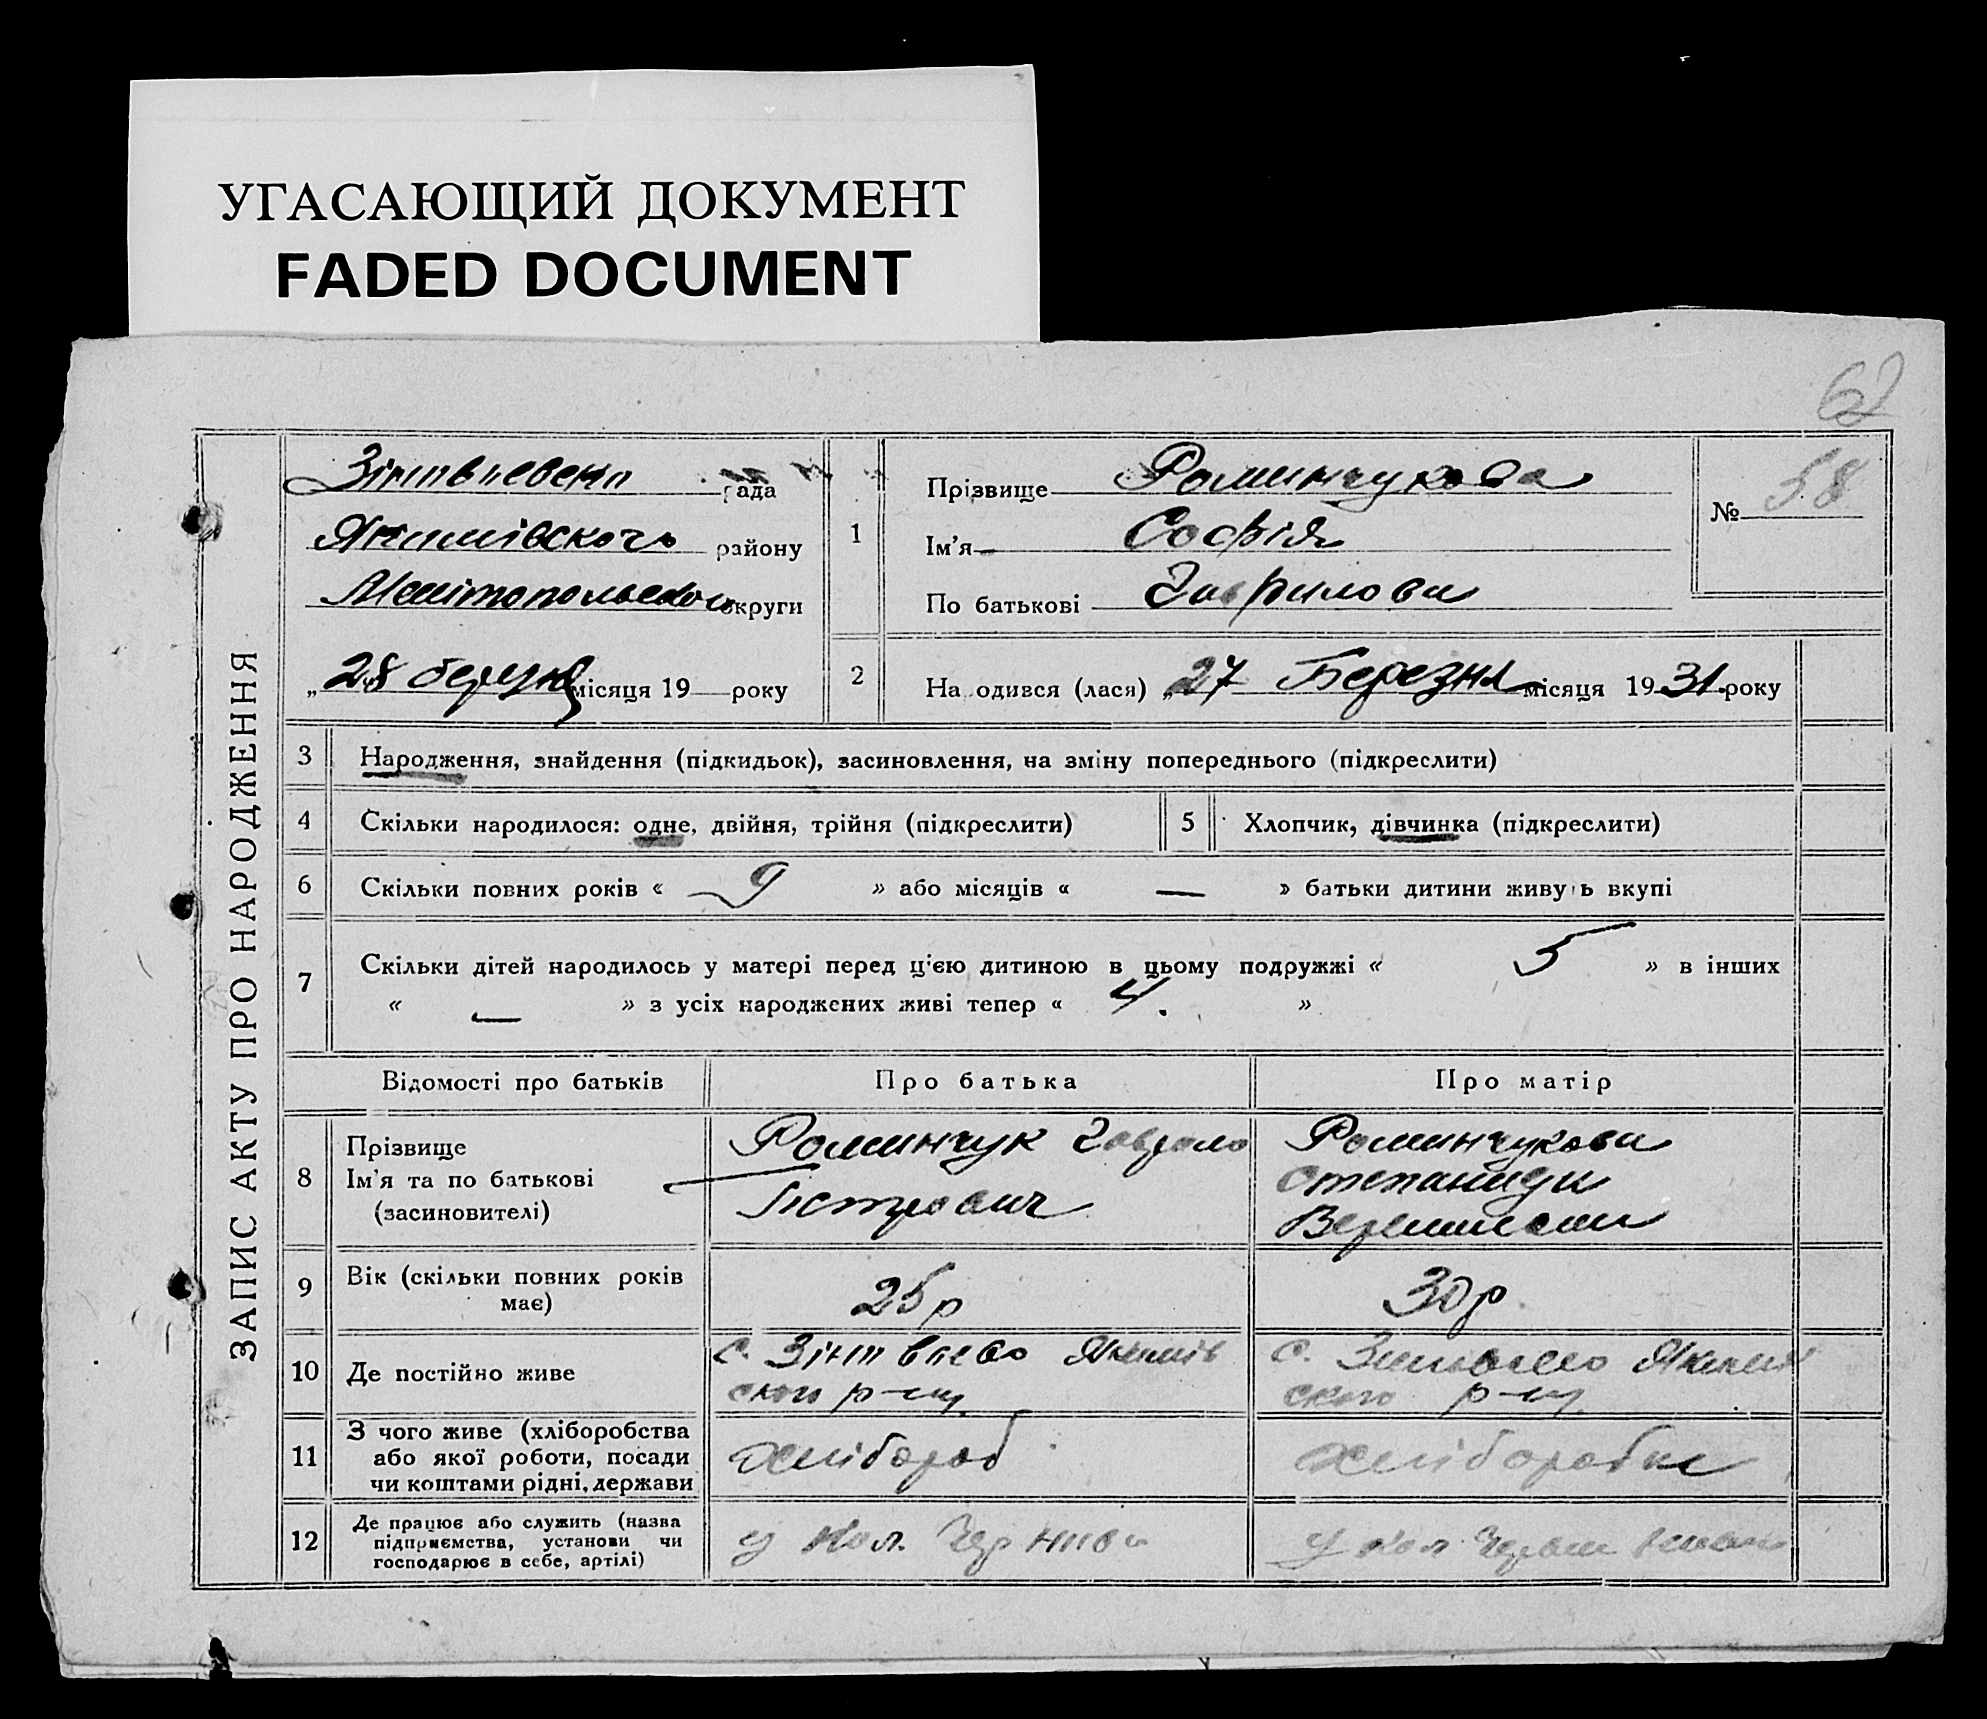 УГАСАЮЩИЙ ДОКУМЕНТ
FADED DOCUMENT
62
ЗАПИС АКТУ ПРО НАРОДЖЕННЯ
рада
Якимівского району
Мелітопольскои округи
„28 березня місяця 19 року
1
Прізвище Роминчукова
Ім’я Софія
По батькові Гаврилова
№ 58
2
На одився (лася) „27 Березня місяця 1931 року
3 Народження, знайдення (підкидьок), засиновлення, на зміну попереднього (підкреслити)
4 Скільки народилося: одне, двійня, трійня (підкреслити)
5 Хлопчик, дівчинка (підкреслити)
6 Скільки повних років « 9 » або місяців « — » батьки дитини живуть вкупі
7 Скільки дітей народилось у матері перед цією дитиною в цьому подружжі « 5 » в інших
« — » з усіх народжених живі тепер « 4. »
Відомості про батьків
Про батька
Про матір
8
Прізвище
Ім’я та по батькові
(засиновителі)
Роминчук Гаврило
Петрович
Роминчукова
Степанида
9
Вік (скільки повних років
має)
25 р
30 р.
10 Де постійно живе
с. Якимів
ского р-ну
с. Якимів
ского р-ну
11
З чого живе (хліборобства
або якої роботи, посади
чи коштами рідні, держави
хлібороб
хліборобка
12
Де працює або служить (назва
підприємства, установи чи
господарює в себе, артілі)
у кол.
у кол